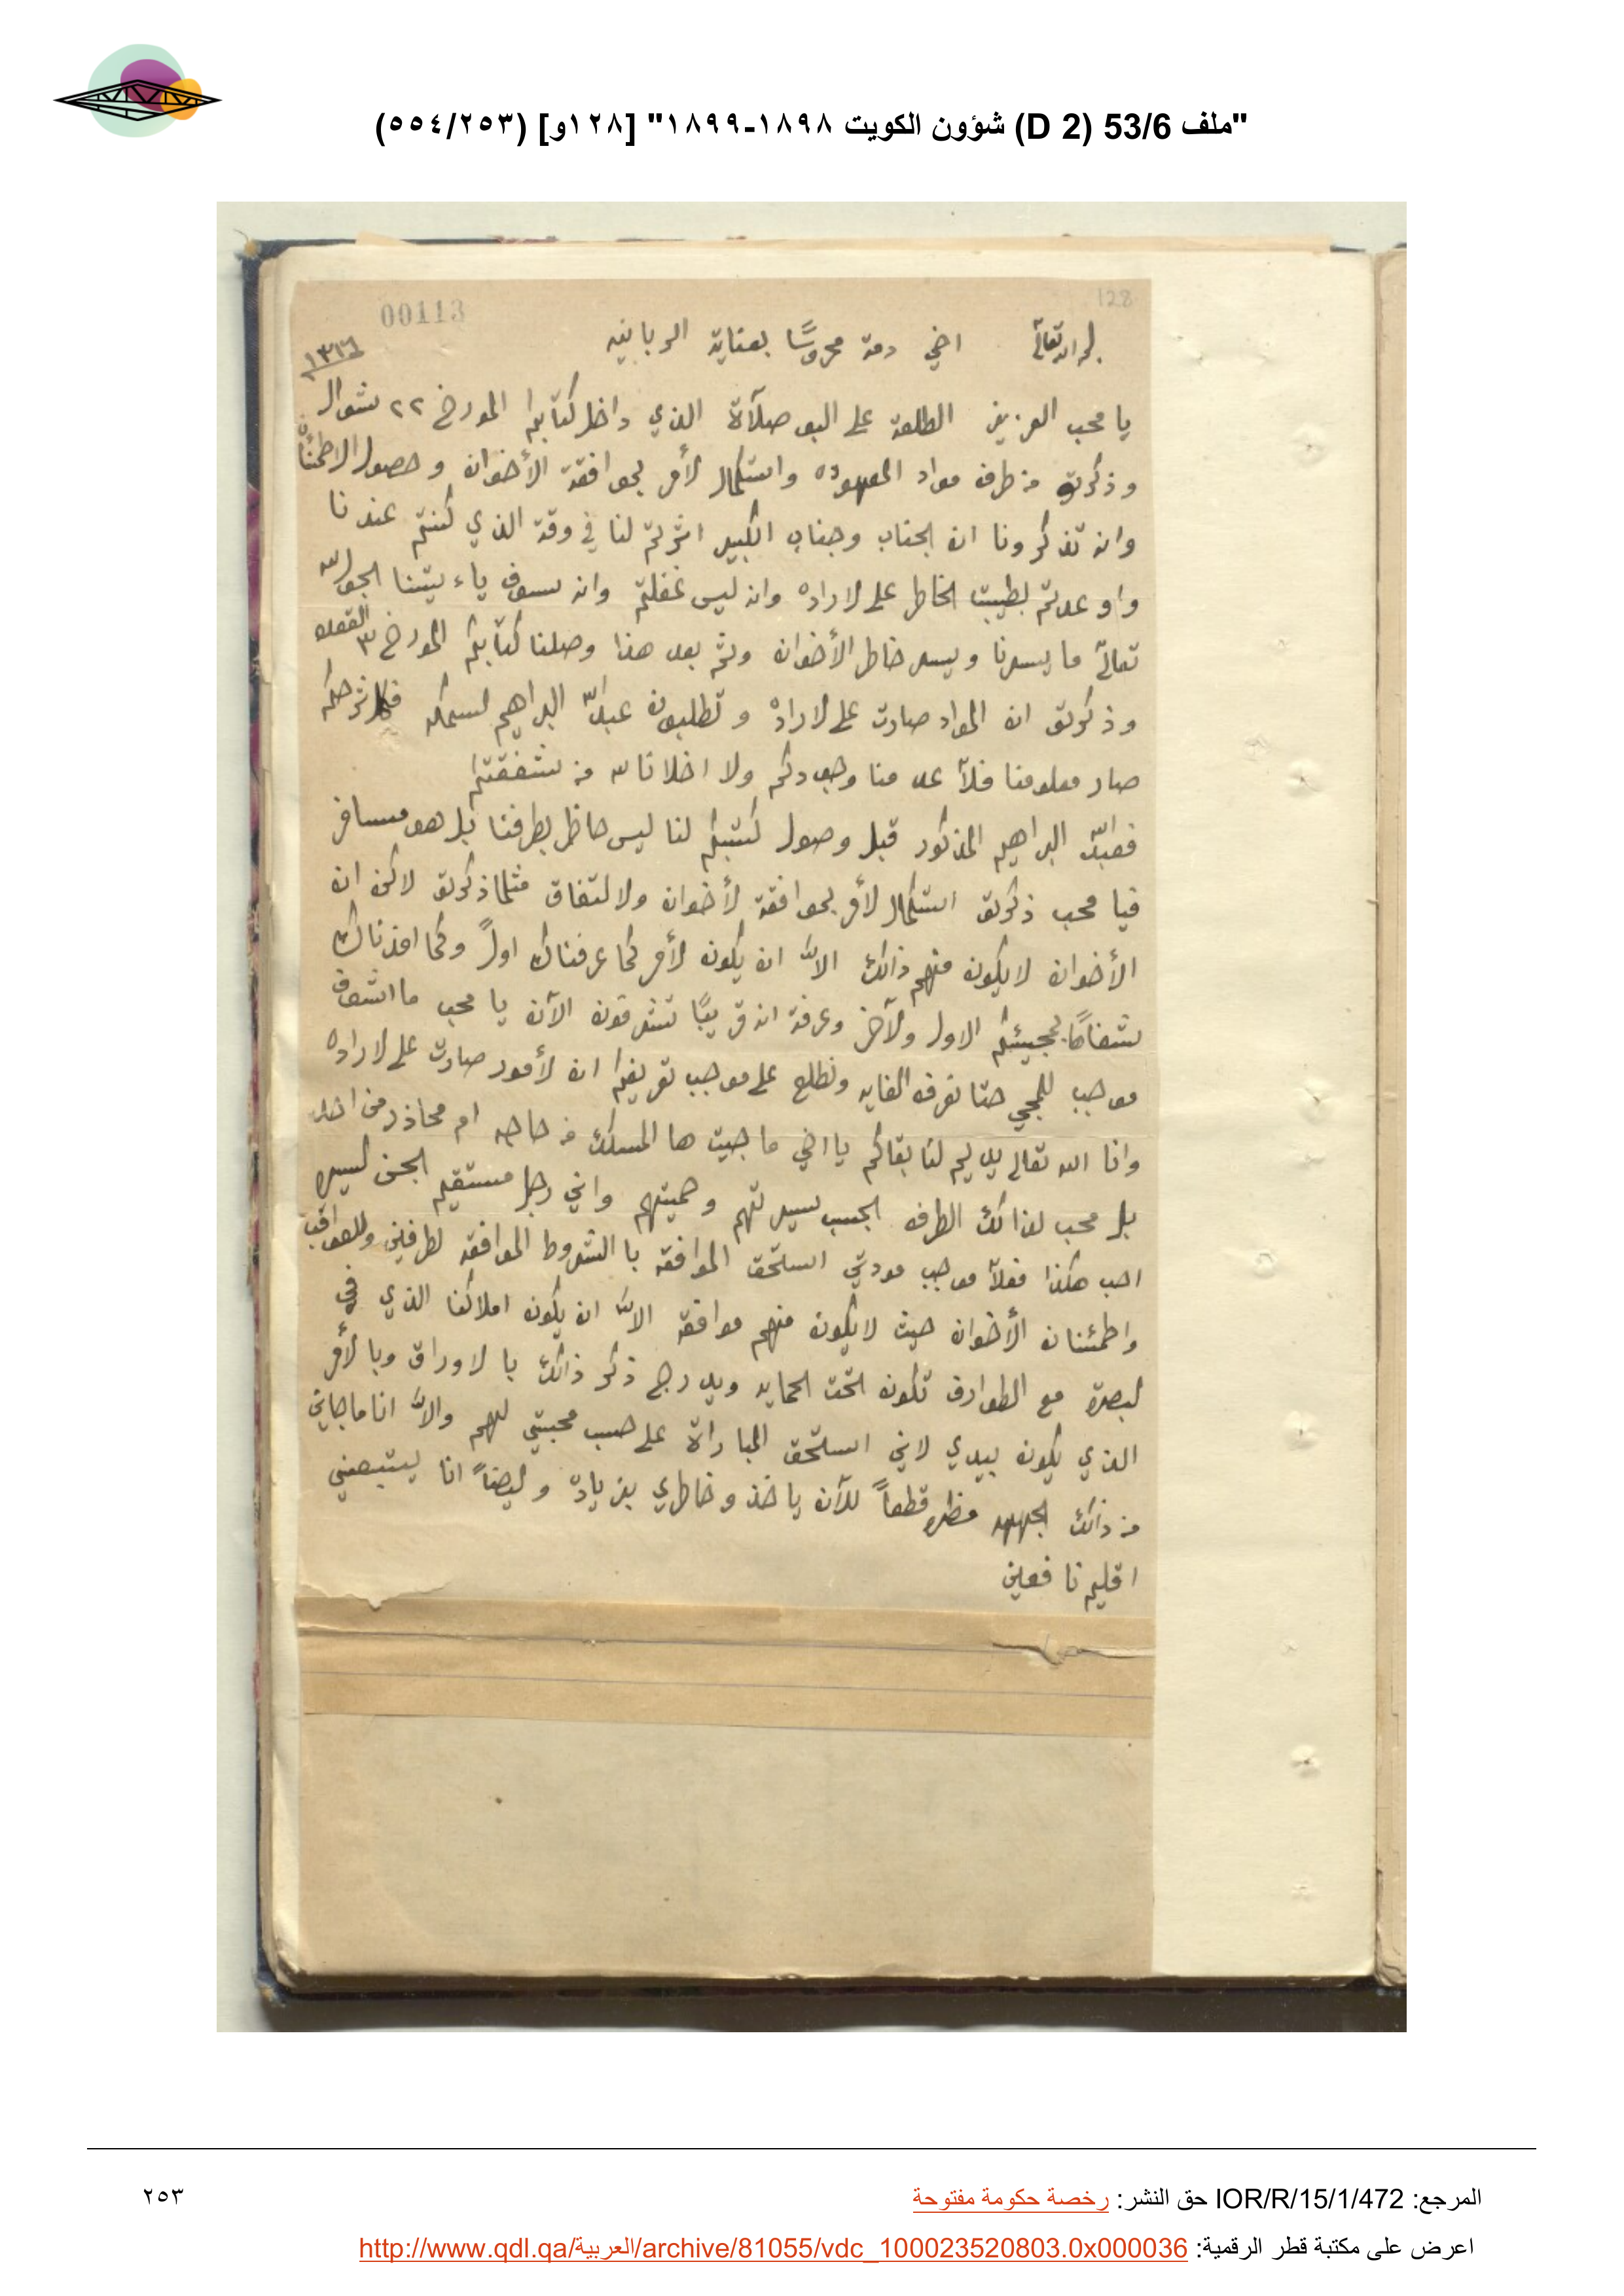 "ملف 53/6 (D 2) شؤون الكويت ١٨٩٨-١٨٩٩" [١٢٨و] (٢٥٣/٥٥٤)
128
00113
اخي دمة محروسًا بعناية الربانيه
١٣١٦
يا محب العزيز الطلعة على البوصلآة الذي داخل كتابكم المورخ ٢٢ شوال
وذكرتو من طرف مواد المعهوده واستكمال لأمر بموافقة الأخوان وحصول الاطمئنان
وانه تذكرونا ان الجناب وجناب الكبير اشرتم لنا في وقة الذي كنتم عندنا
واوعدتم بطيبت الخاطر على لاراده وانه ليس غفلتم وانه سوف ياءتيننا
تعالى ما يسرنا ويسر خاطر الأخوان وثم بعد هذا وصلنا كتابكم المورخ ٣ القعده
وذكرتو ان المواد صارت على لاراده وتطلبون عبدالله البراهيم لسمكه
صار معلومنا فلآ عدمنا وجودكم ولا اخلانا من شفقتكم
فعبدالله البراهيم المذكور قبل وصول كتبكم لنا ليس حاظر بطرفنا بل هو مسافر
فيا محب ذكرتو استكمال لأمر بموافقة لأخوان ولا لتفاق مثلما ذكرتو لاكن ان
الأخوان لا يكون منهم ذالك الا ان يكون لأمر كما عرفناك اولاً وكما اخذناك
شفاهًا بمجيئكم الاول ولآخر وعرفة انه قريبًا تشرفون الآن يا محب ما اشوف
موجب للمجي حتا نعرف الغايه ونطلع على موجب تعريفكم ان لأمور صارت على لاراده
وانا الله تعالى يديم لنا بقاكم يا اخي ما جيت ها المسلك من حاجه ام محاذر من احد
بل محب لذالك الطرف الحسب سيرتهم وحميتهم واني رجل مستقيم
احب هكذا فعلآ موجب مودتي استحق الموافقه با الشروط الموافقه لطرفين وللعواقب
واطمئنان الأخوان حيث لا يكون منهم موافقه الا ان يكون املاكنا الذي في
لبصرة مع الطوارف تكون تحت الحمايه ويدرج ذكر ذالك با لاوراق وبا لأمر
الذي يكون بيدي لاني استحق المباراة على حسب محبتي لهم والا انا ما جاني
من ذالك الجهه مظره قطعاً للآن ياخذ وخاطري بزياده وليضاً انا يتبعني
اقليم نافعين
المرجع: IOR/R/15/1/472 حق النشر: رخصة حكومة مفتوحة
٢٥٣
اعرض على مكتبة قطر الرقمية: http://www.qdl.qa/العربية/archive/81055/vdc_100023520803.0x000036